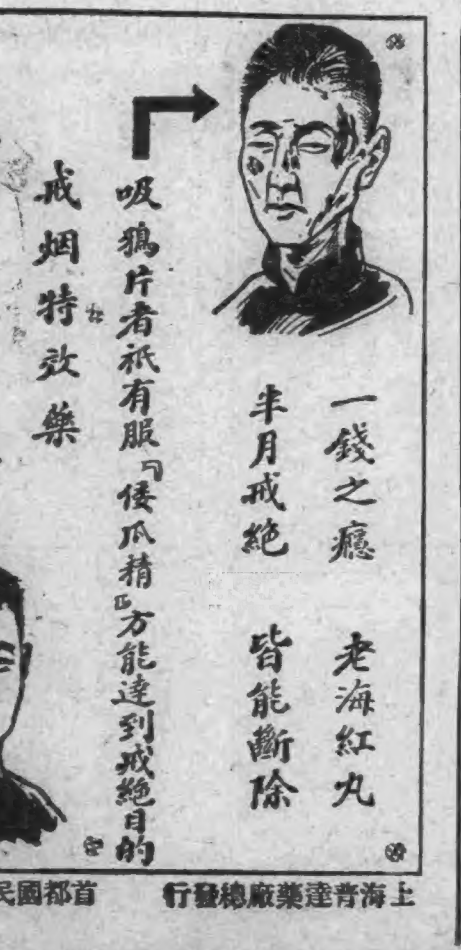 一錢之癮 老海紅丸
半月戒絕 皆能斷除
吸鴉片者祇有服『倭瓜精』方能達到戒絕目的
戒烟特效藥
上海普達藥廠總發行
首都國民